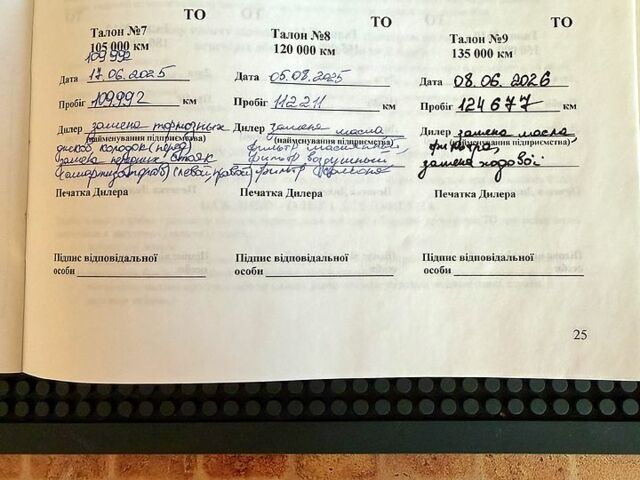 ТО
Талон №7
105 000 км
109 992
Дата 17.06.2025
Пробіг 109992 км
Дилер замена тормозных
(найменування підприємства)
дисков колодок (перед)
замена передних стоек
(амортизаторов) левой, правой
Печатка Дилера
Підпис відповідальної
особи
ТО
Талон №8
120 000 км
Дата 05.08.2025
Пробіг 112211 км
Дилер замена масла
(найменування підприємства)
фильтр масляный,
фильтр воздушный
фильтр салона
Печатка Дилера
Підпис відповідальної
особи
ТО
Талон №9
135 000 км
Дата 08.06.2026
Пробіг 124677 км
Дилер замена масла,
(найменування підприємства)
фильтра,
замена ходової
Печатка Дилера
Підпис відповідальної
особи
25